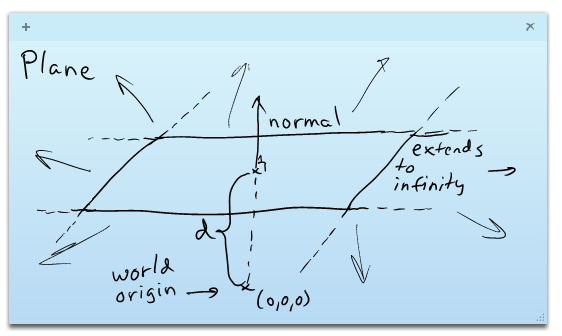 Plane
normal
extends
to
infinity
d
world
origin
(0,0,0)